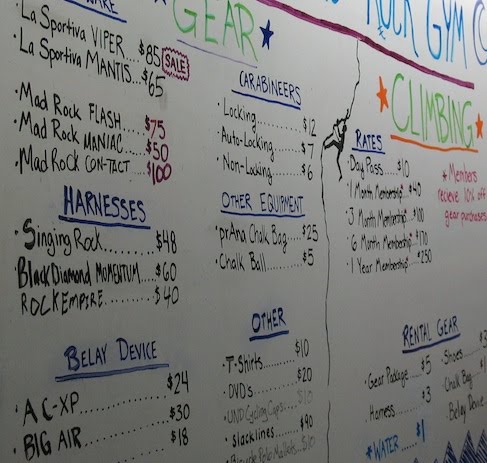 GEAR
ROCK GYM
La Sportiva VIPER $85 SALE
La Sportiva MANTIS $65
Mad Rock FLASH $75
Mad Rock MANIAC $50
Mad Rock CONTACT $100
HARNESSES
Singing Rock $48
Black Diamond MOMENTUM $60
ROCK EMPIRE $40
BELAY DEVICE
$24
AC-XP $30
BIG AIR $18
CARABINEERS
Locking $12
Auto-Locking $7
Non-Locking $6
OTHER EQUIPMENT
prAna Chalk Bag $25
Chalk Ball $5
OTHER
T-Shirts $10
DVDs $20
UND Cycling Caps $10
Slacklines $90
Bicycle Polo Mallets $10
CLIMBING
RATES
Day Pass $10
1 Month Membership* $40
3 Month Membership* $100
6 Month Membership* $170
1 Year Membership* $250
* Members
recieve 10% off
gear purchases
RENTAL GEAR
Gear Package $5
Harness $3
Shoes $3
Chalk Bag $1
Belay Device
*WATER $1